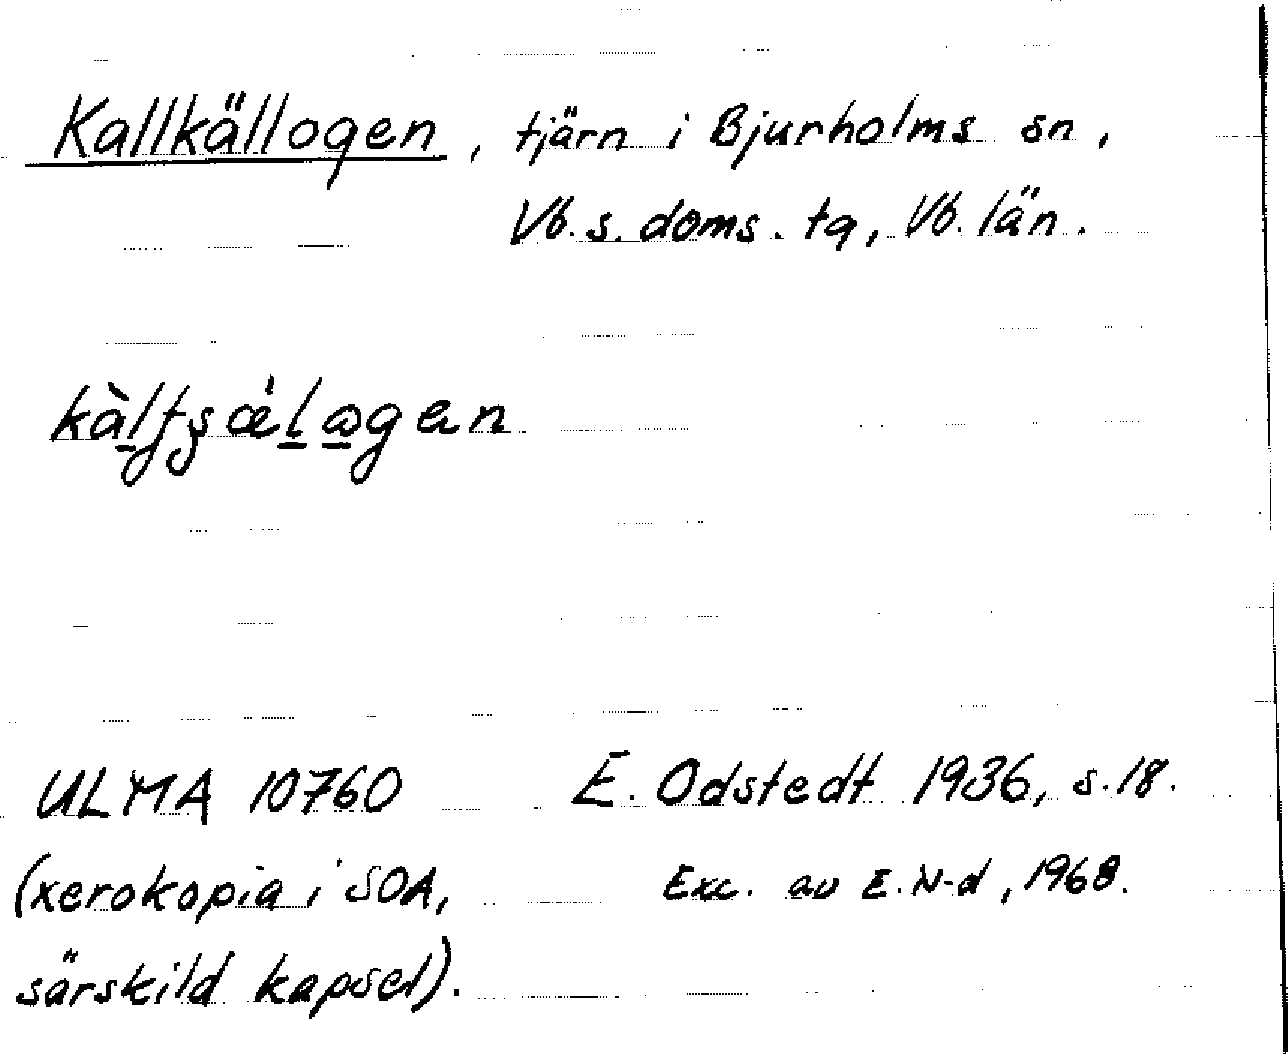 Kallkällogen, tjärn i Bjurholms sn,
Vb. s. doms. tg, Vb. län.
ULMA 10760 E. Odstedt 1936, s. 18.
(xerokopia i SOA, Exc. av E. N-d, 1968.
särskild kapsel).